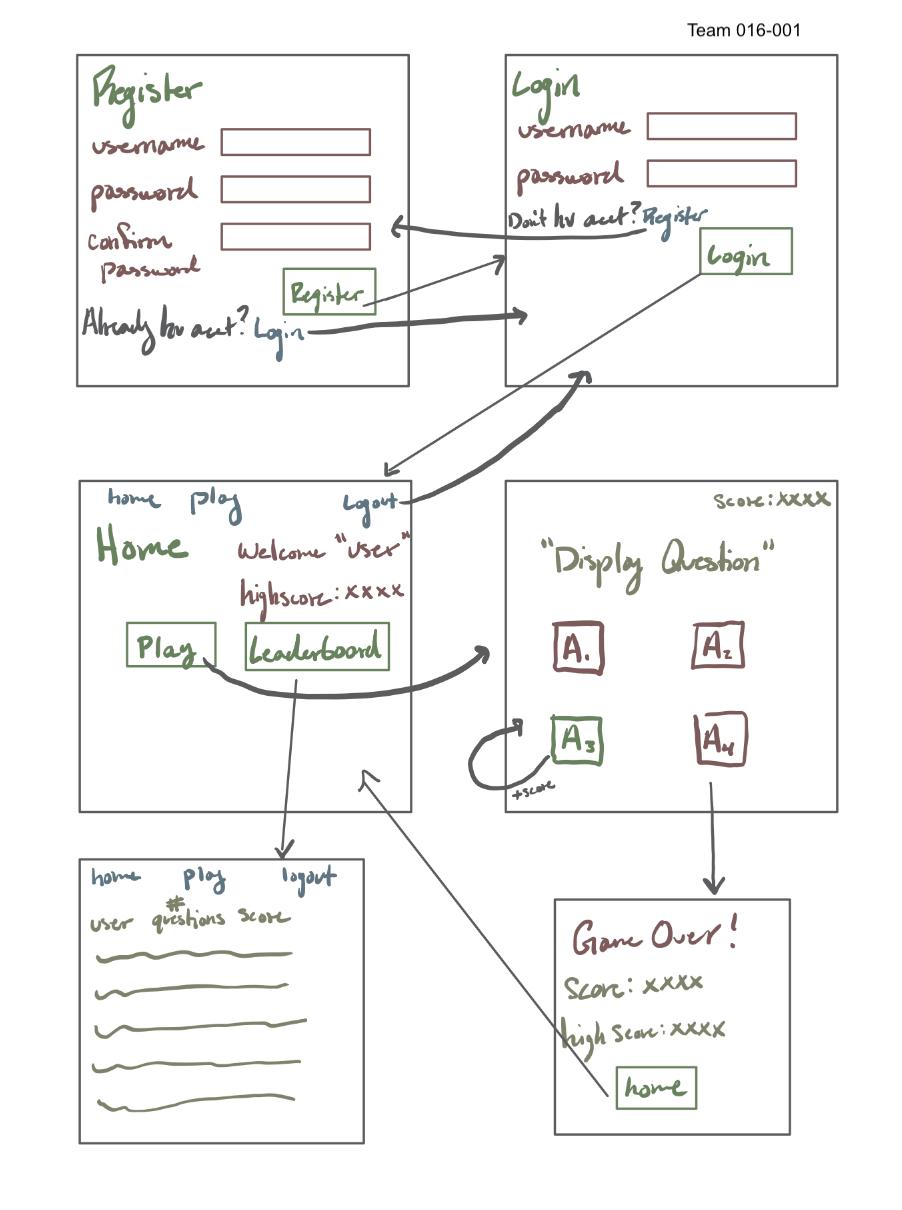 Team 016-001
Register
username
password
confirm
password
Register
Already hv acct? Login
Login
username
password
Don't hv acct? Register
Login
home play Logout
Home Welcome "user"
highscore: xxxx
Play Leaderboard
Score: xxxx
"Display Question"
A1 A2
A3 A4
+score
home play logout
user # questions score
Game Over!
Score: xxxx
high score: xxxx
home